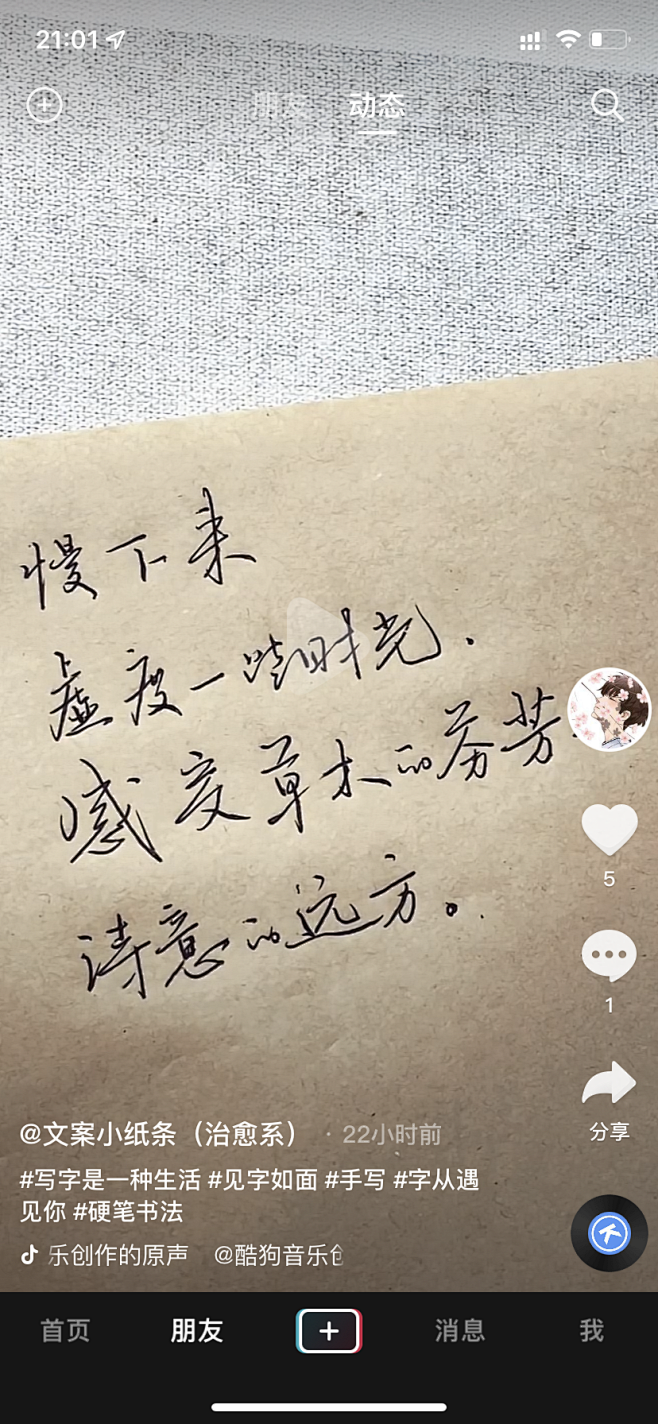 21:01
朋友 动态
慢下来
虚度一些时光.
感受草木的芬芳
诗意的远方。
5
1
分享
@文案小纸条（治愈系） · 22小时前
#写字是一种生活 #见字如面 #手写 #字从遇
见你 #硬笔书法
乐创作的原声 @酷狗音乐
首页 朋友 消息 我